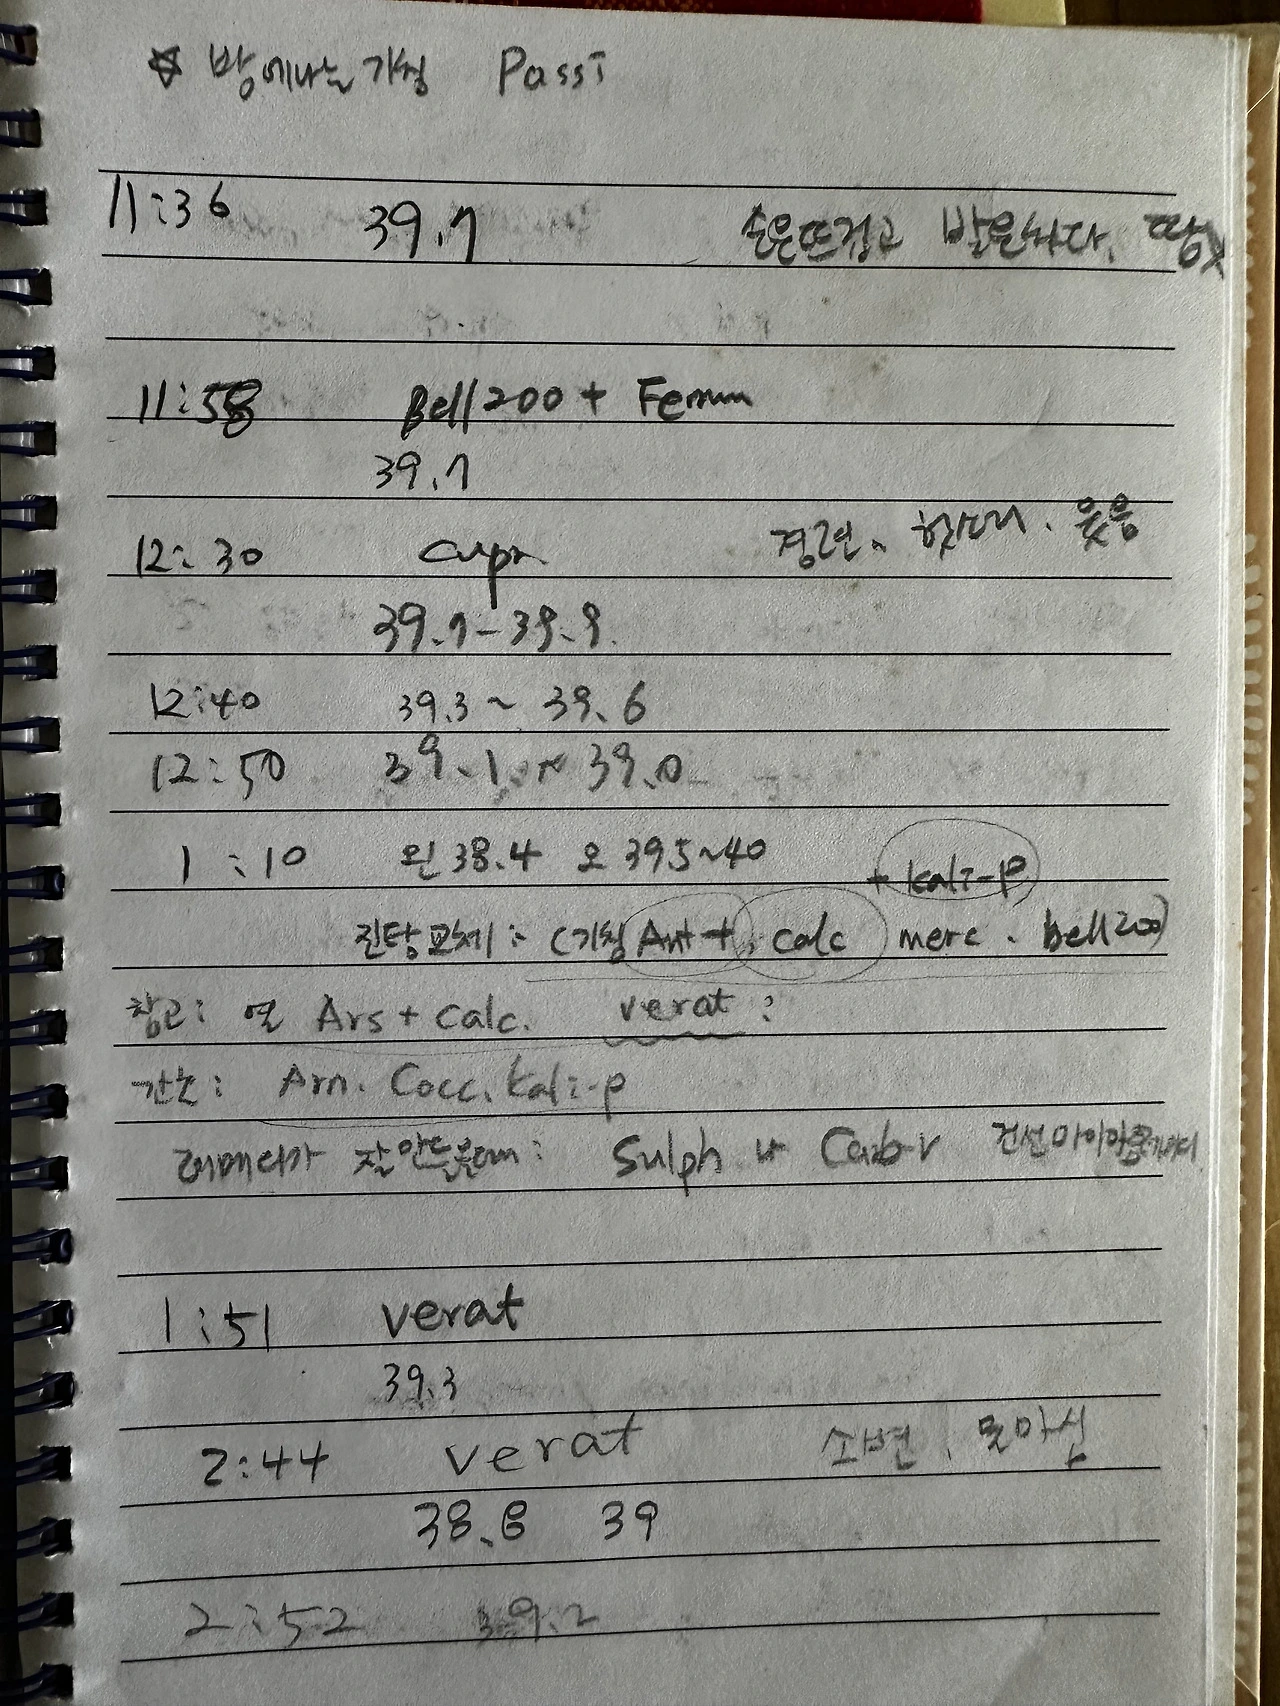 ☆ 밤에나는기침 Passi
11:36 39.7 손은뜨겁고 발은차다. 땀X
11:58 Bell 200 + Ferrum
39.7
12:30 cupr 경련. 헛소리. 웃음
39.7-39.9.
12:40 39.3 ~ 39.6
12:50 39.1 ~ 39.0
1:10 왼 38.4 오 39.5~40
+ kali-p
진탕교체:- (기침 Ant-t. calc merc. bell 200)
참고: 열 Ars + calc. verat:
간호: Arn. Cocc. kali-p
레메디가 잘안들을때: Sulph Carb-v
1:51 verat
39.3
2:44 verat 소변. 물마심
38.8 39
2:52 39.2